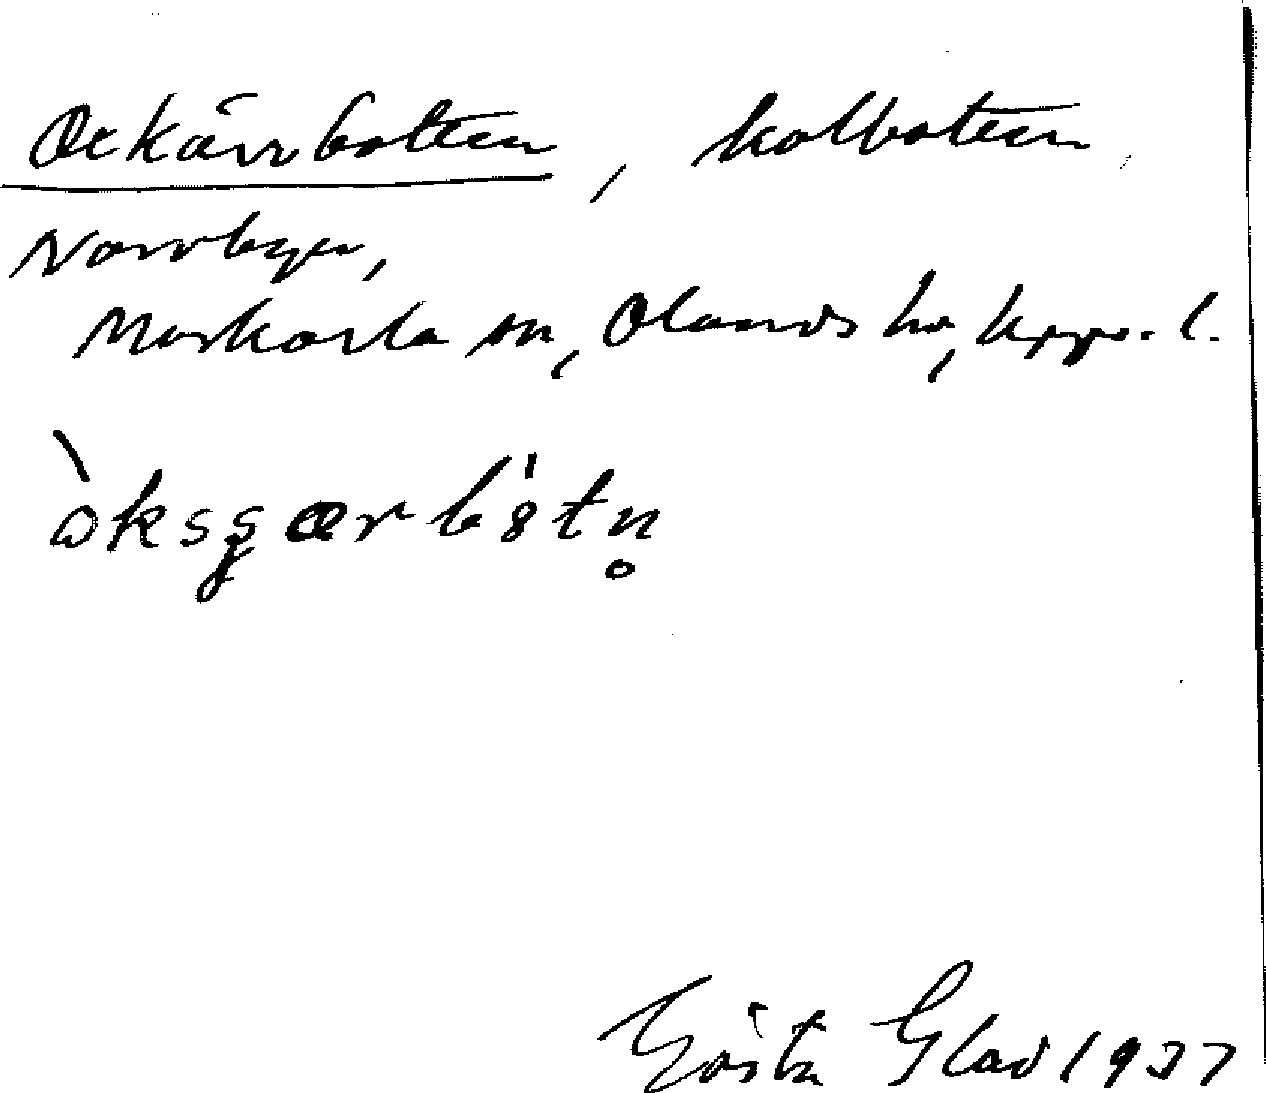 Oxkärrbotten, kolbotten
Norrbyn,
Morkarla sn, Olands hd, Upps. l.
Gösta Glad 1937